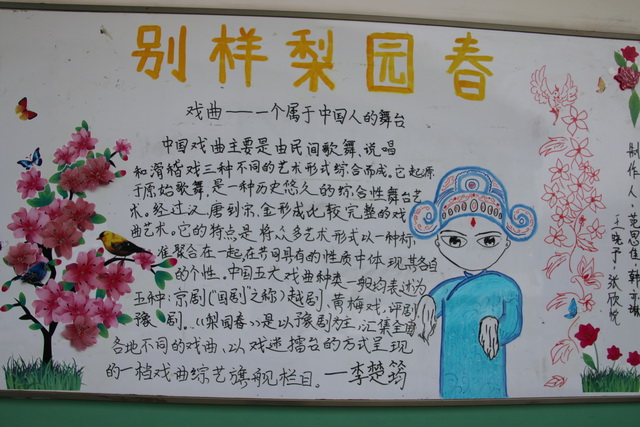 别样梨园春
戏曲——一个属于中国人的舞台
中国戏曲主要是由民间歌舞、说唱
和滑稽戏三种不同的艺术形式综合而成。它起源
于原始歌舞，是一种历史悠久的综合性舞台艺
术。经过汉、唐到宋、金形成比较完整的戏
曲艺术。它的特点是将众多艺术形式以一种标
准聚合在一起，在共同具有的性质中体现其各自
的个性。中国五大戏曲种类一般均表述为
五种：京剧（“国剧”之称）越剧、黄梅戏、评剧
豫剧。《梨园春》是以豫剧为主，汇集全国
各地不同的戏曲、以戏迷擂台的方式呈现
的一档戏曲综艺旗舰栏目。—李楚筠
制作人：
王晓予 张欣悦